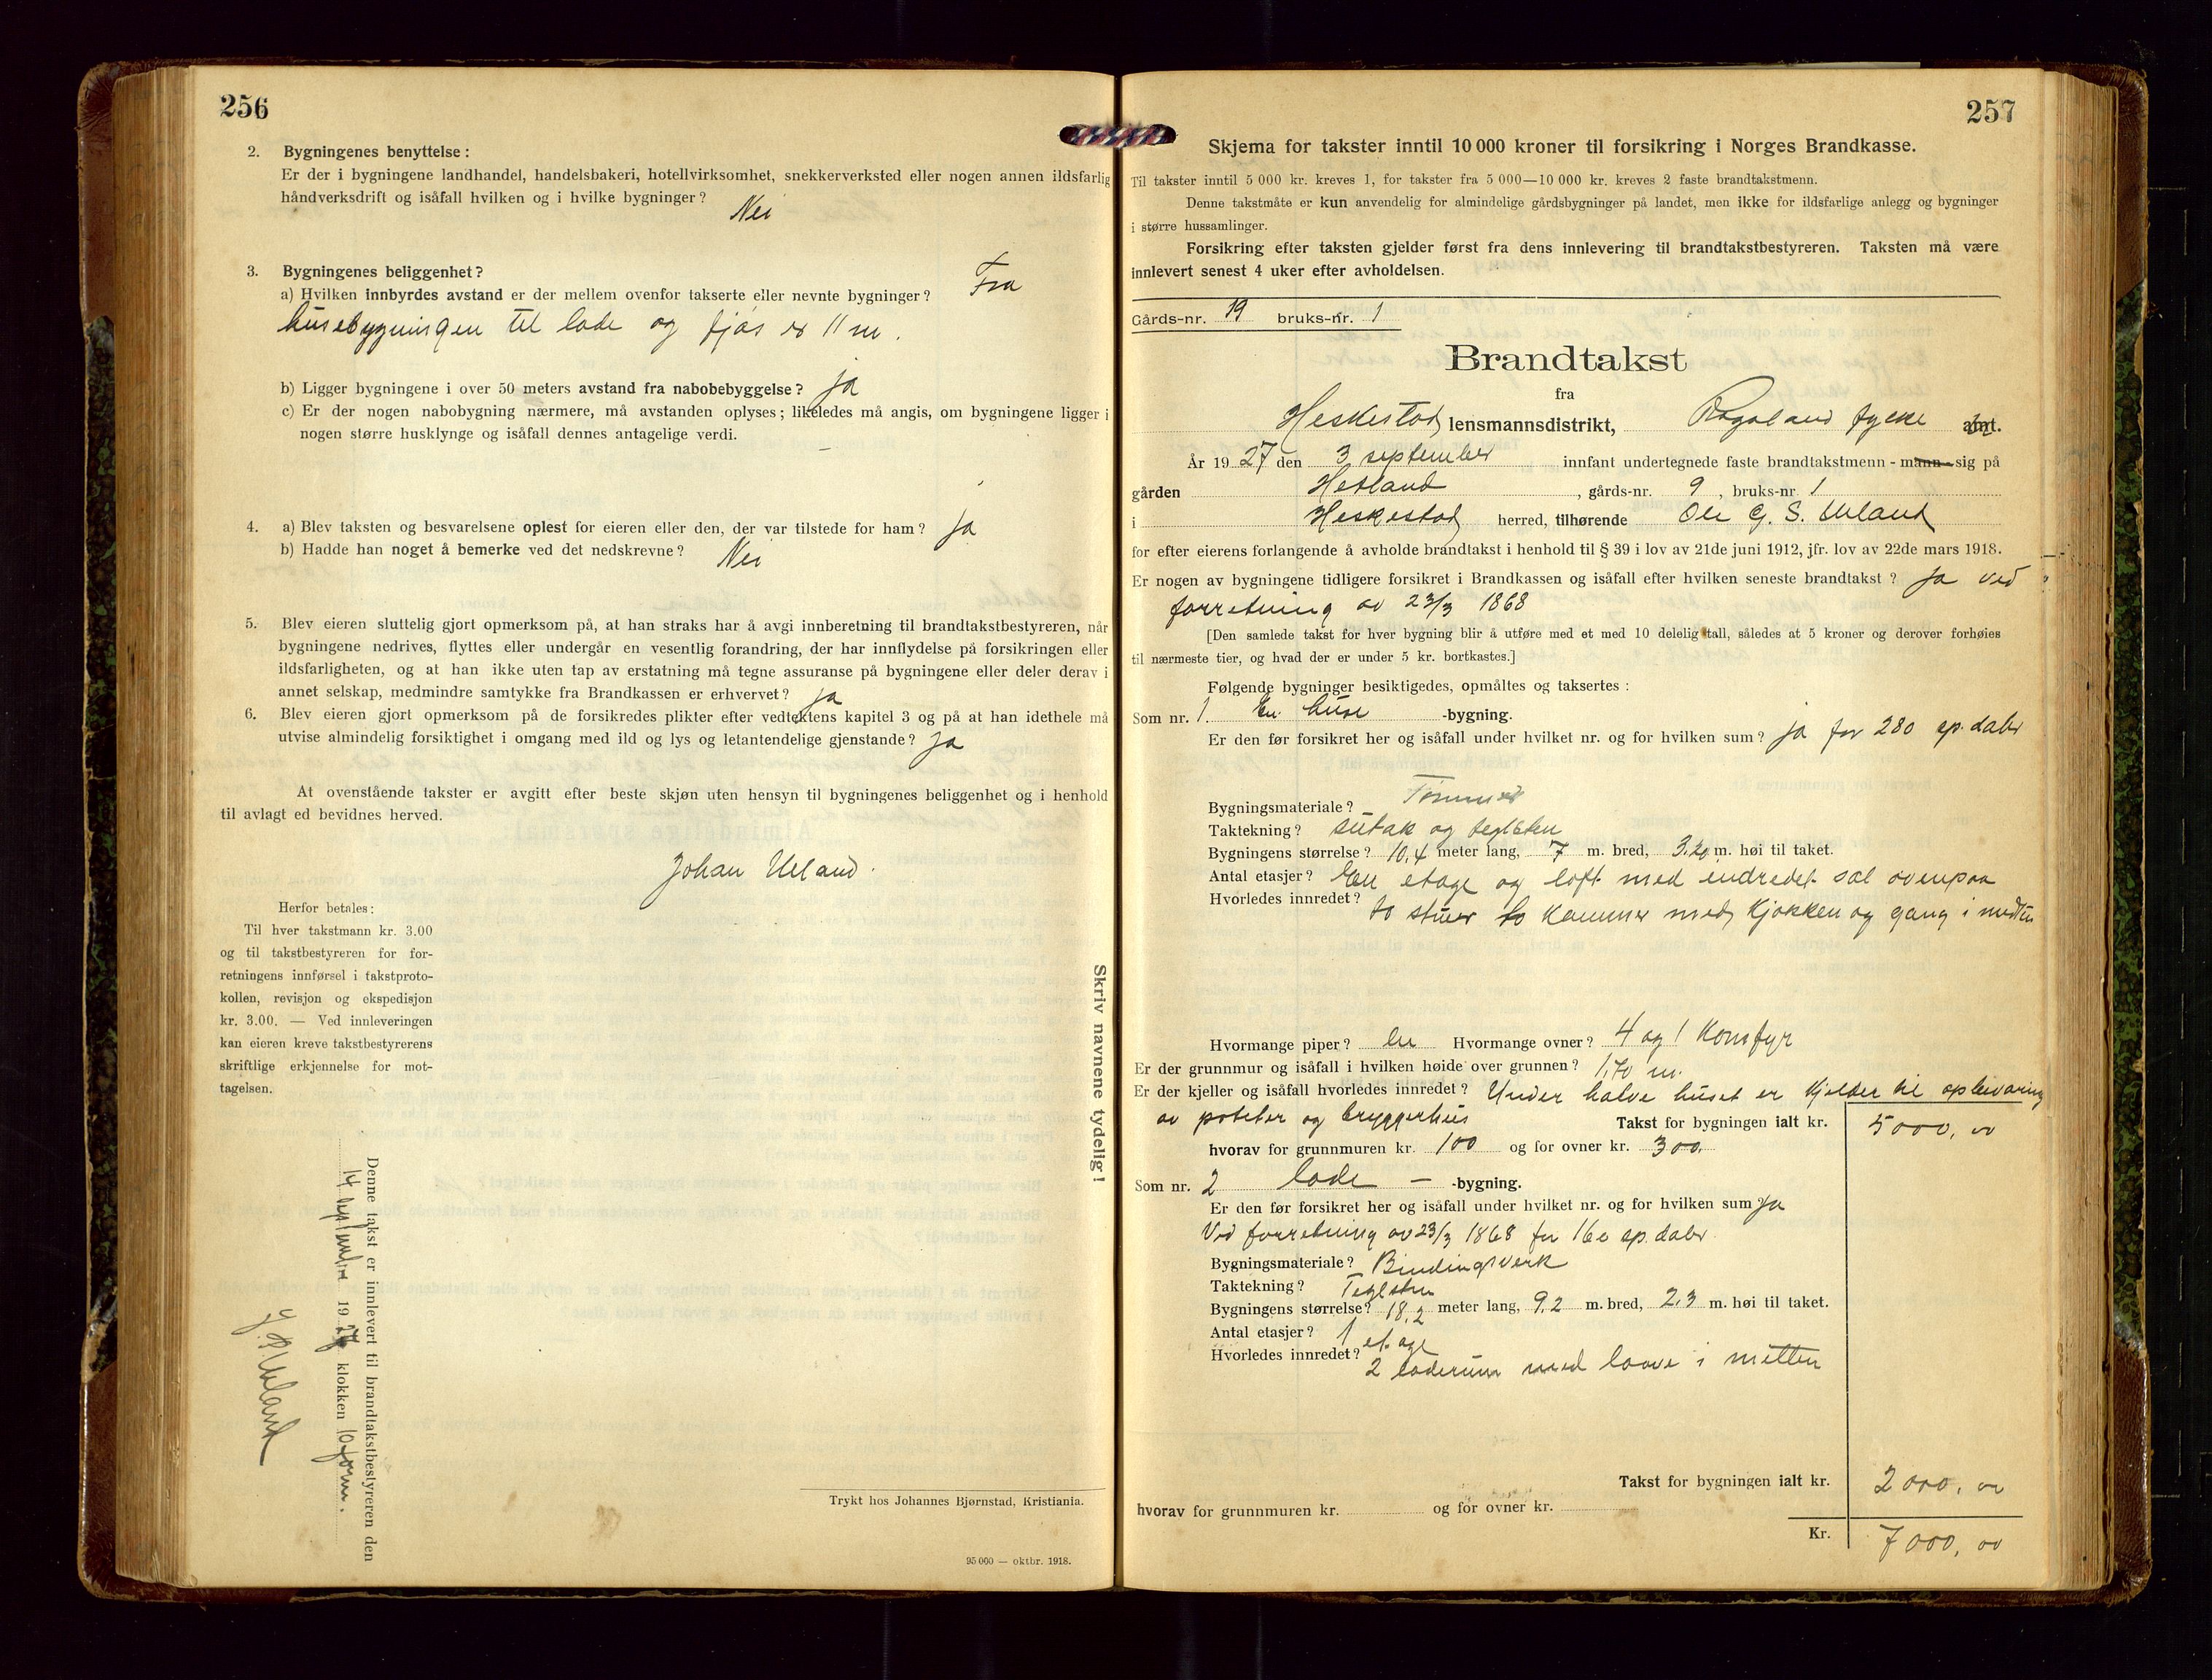 256
2. Bygningenes benyttelse:
Er der i bygningene landhandel, handelsbakeri, hotellvirksomhet, snekkerverksted eller nogen annen ildsfarlig
håndverksdrift og isåfall hvilken og i hvilke bygninger? Nei
3. Bygningenes beliggenhet?
a) Hvilken innbyrdes avstand er der mellem ovenfor takserte eller nevnte bygninger? Fra
husebygningen til lade og fjøs er 11 m.
b) Ligger bygningene i over 50 meters avstand fra nabobebyggelse? ja
c) Er der nogen nabobygning nærmere, må avstanden oplyses; likeledes må angis, om bygningene ligger i
nogen større husklynge og isåfall dennes antagelige verdi.
4. a) Blev taksten og besvarelsene oplest for eieren eller den, der var tilstede for ham? ja
b) Hadde han noget å bemerke ved det nedskrevne? Nei
5. Blev eieren sluttelig gjort opmerksom på, at han straks har å avgi innberetning til brandtakstbestyreren, når
bygningene nedrives, flyttes eller undergår en vesentlig forandring, der har innflydelse på forsikringen eller
ildsfarligheten, og at han ikke uten tap av erstatning må tegne assuranse på bygningene eller deler derav i
annet selskap, medmindre samtykke fra Brandkassen er erhvervet? ja
6. Blev eieren gjort opmerksom på de forsikredes plikter efter vedtektens kapitel 3 og på at han idethele må
utvise almindelig forsiktighet i omgang med ild og lys og letantendelige gjenstande? ja
At ovenstående takster er avgitt efter beste skjøn uten hensyn til bygningenes beliggenhet og i henhold
til avlagt ed bevidnes herved.
Johan Ueland.
Herfor betales:
Til hver takstmann kr. 3.00
og til takstbestyreren for for-
retningens innførsel i takstproto-
kollen, revisjon og ekspedisjon
kr. 3.00. — Ved innleveringen
kan eieren kreve takstbestyrerens
skriftlige erkjennelse for mot-
tagelsen.
Skriv navnene tydelig!
Denne takst er innlevert til brandtakstbestyreren den
14 september 1927 klokken 10 form.
Ueland
Trykt hos Johannes Bjørnstad, Kristiania.
95 000 — oktbr. 1918.
257
Skjema for takster inntil 10 000 kroner til forsikring i Norges Brandkasse.
Til takster inntil 5 000 kr. kreves 1, for takster fra 5 000—10 000 kr. kreves 2 faste brandtakstmenn.
Denne takstmåte er kun anvendelig for almindelige gårdsbygninger på landet, men ikke for ildsfarlige anlegg og bygninger
i større hussamlinger.
Forsikring efter taksten gjelder først fra dens innlevering til brandtakstbestyreren. Taksten må være
innlevert senest 4 uker efter avholdelsen.
Gårds-nr. 19 bruks-nr. 1
Brandtakst
fra
Heskestad lensmannsdistrikt, Rogaland fylke amt.
År 1927 den 3 september innfant undertegnede faste brandtakstmenn - mann - sig på
gården Hetland, gårds-nr. 9, bruks-nr 1
i Heskestad herred, tilhørende Ole G. S. Ueland
for efter eierens forlangende å avholde brandtakst i henhold til § 39 i lov av 21de juni 1912, jfr. lov av 22de mars 1918.
Er nogen av bygningene tidligere forsikret i Brandkassen og isåfall efter hvilken seneste brandtakst? ja ved
forretning av 23/3 1868
[Den samlede takst for hver bygning blir å utføre med et med 10 delelig tall, således at 5 kroner og derover forhøies
til nærmeste tier, og hvad der er under 5 kr. bortkastes.]
Følgende bygninger besiktigedes, opmåltes og taksertes:
Som nr. 1. En huse -bygning.
Er den før forsikret her og isåfall under hvilket nr. og for hvilken sum? ja for 280 sp. daler
Bygningsmateriale? Tømmer
Taktekning? sutak og teglsten
Bygningens størrelse? 10,4 meter lang, 7 m. bred, 3.20 m. høi til taket.
Antal etasjer? En etage og loft med indredet sal ovenpaa
Hvorledes innredet? to stuer to kammer med kjøkken og gang i midten
Hvormange piper? en Hvormange ovner? 4 og 1 Komfyr
Er der grunnmur og isåfall i hvilken høide over grunnen? 1,70 m.
Er der kjeller og isåfall hvorledes innredet? Under halve huset er kjelder til opbevaring
av poteter og bryggerhus Takst for bygningen ialt kr. 5000,00
hvorav for grunnmuren kr. 100 og for ovner kr. 300.
Som nr. 2 lade — -bygning.
Er den før forsikret her og isåfall under hvilket nr. og for hvilken sum ja
Ved forretning av 23/3 1868 for 160 sp. daler
Bygningsmateriale? Bindingsverk
Taktekning? Teglsten
Bygningens størrelse? 18,2 meter lang, 9,2 m. bred, 2,3 m. høi til taket.
Antal etasjer? 1 etage
Hvorledes innredet? 2 laderum med laave i mitten
Takst for bygningen ialt kr. 2000,00
hvorav for grunnmuren kr. og for ovner kr.
Kr. 7000,00